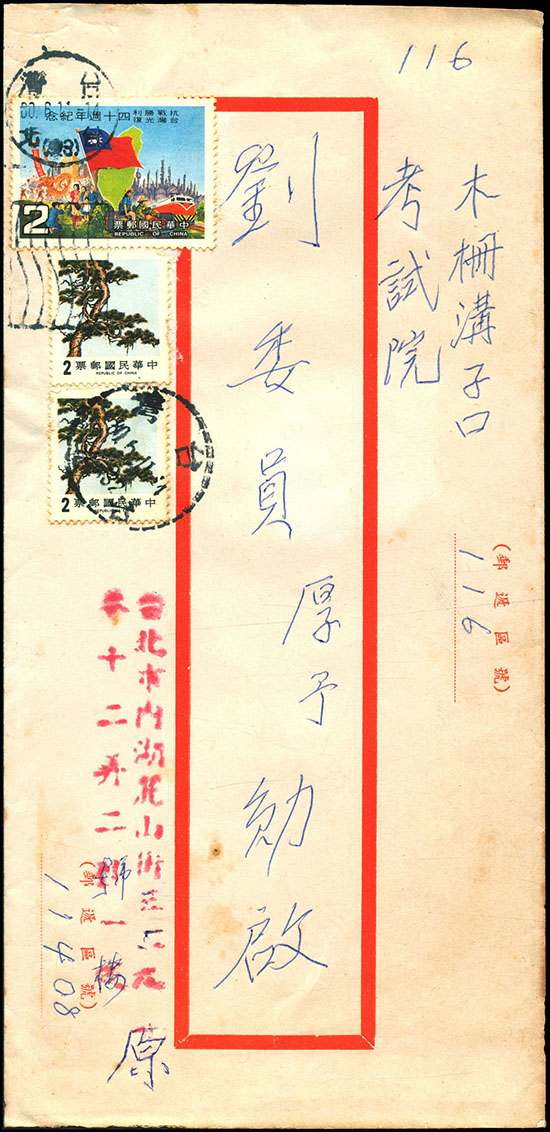 116
木柵溝子口
考試院
(郵遞區號)
116
劉委員厚予勛啟
抗戰勝利
台灣光復
四十週年紀念
2
中華民國郵票
REPUBLIC OF CHINA
中華民國郵票
REPUBLIC OF CHINA
2
中華民國郵票
2
台灣
台
台北市內湖麗山街
巷十二弄二號一樓
原
(郵遞區號)
11408